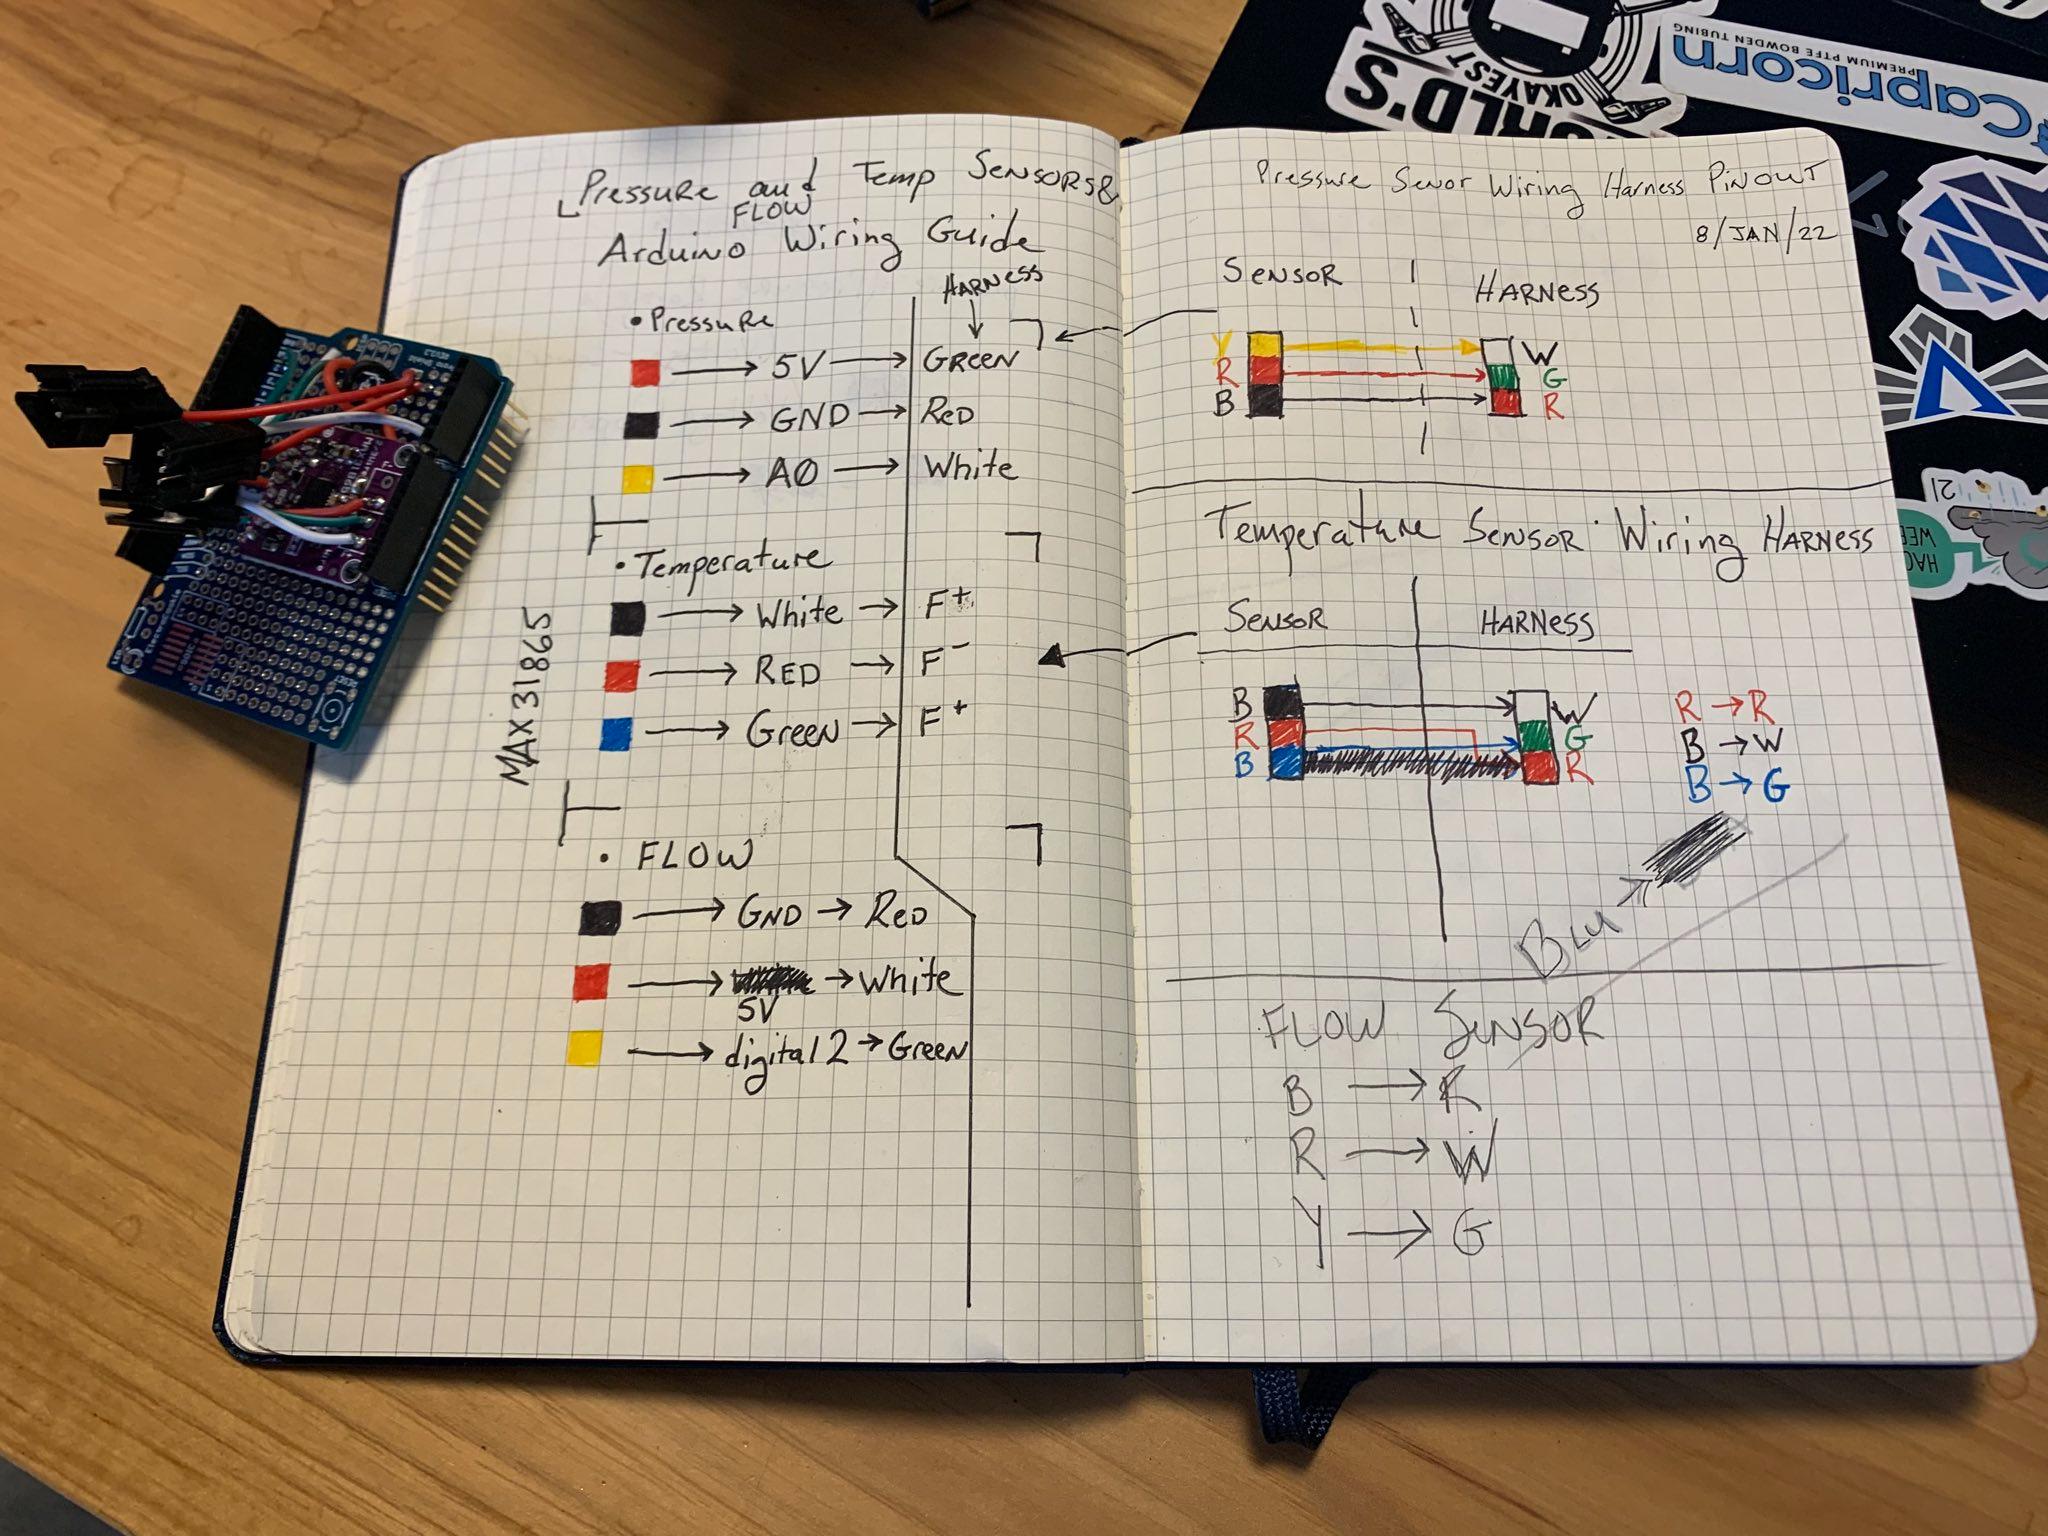 Pressure and Temp Sensors &
FLOW
Arduino Wiring Guide
HARNess
• Pressure
→ 5V → GREEN
→ GND → Red
→ AØ → White
• Temperature
MAX31865
→ White → F+
→ RED → F-
→ Green → F+
• FLOW
→ GND → Red
→ 5V → White
→ digital 2 → Green
Pressure Senor Wiring Harness PiNOUT
8/JAN/22
SENSOR HARNess
Y W
R G
B R
Temperature SENSOR Wiring HARNess
SENSOR HARNess
B W
R G
B R
R → R
B → W
B → G
BLU →
FLOW SENSOR
B → R
R → W
Y → G
WORLD'S
OKAYEST
Capricorn
PREMIUM PTFE BOWDEN TUBING
21